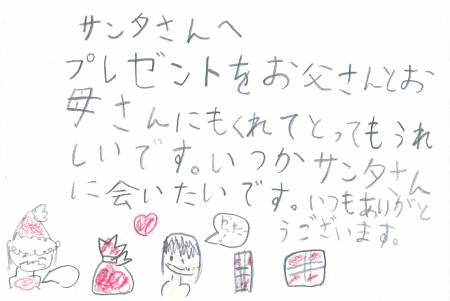 サンタさんへ
プレゼントをお父さんとお
母さんにもくれてとってもうれ
しいです。いつかサンタさん
に会いたいです。いつもありがと
うございます。
やったー